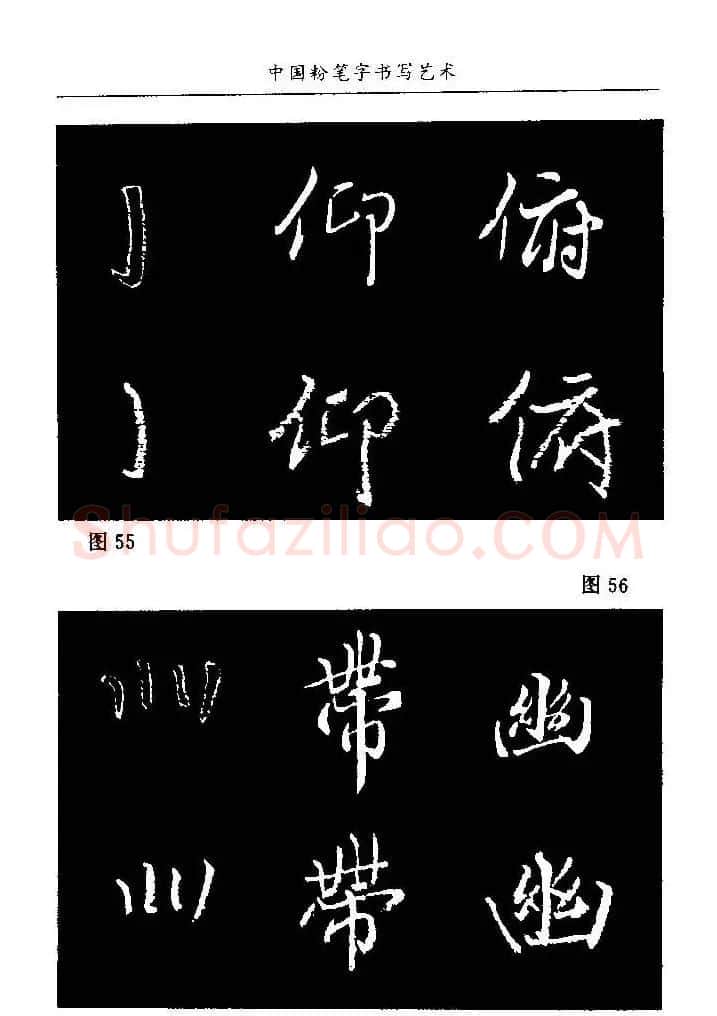 中国粉笔字书写艺术
亅 仰 俯
亅 仰 俯
Shufaziliao.COM
图 55
图 56
帶 幽
帶 幽